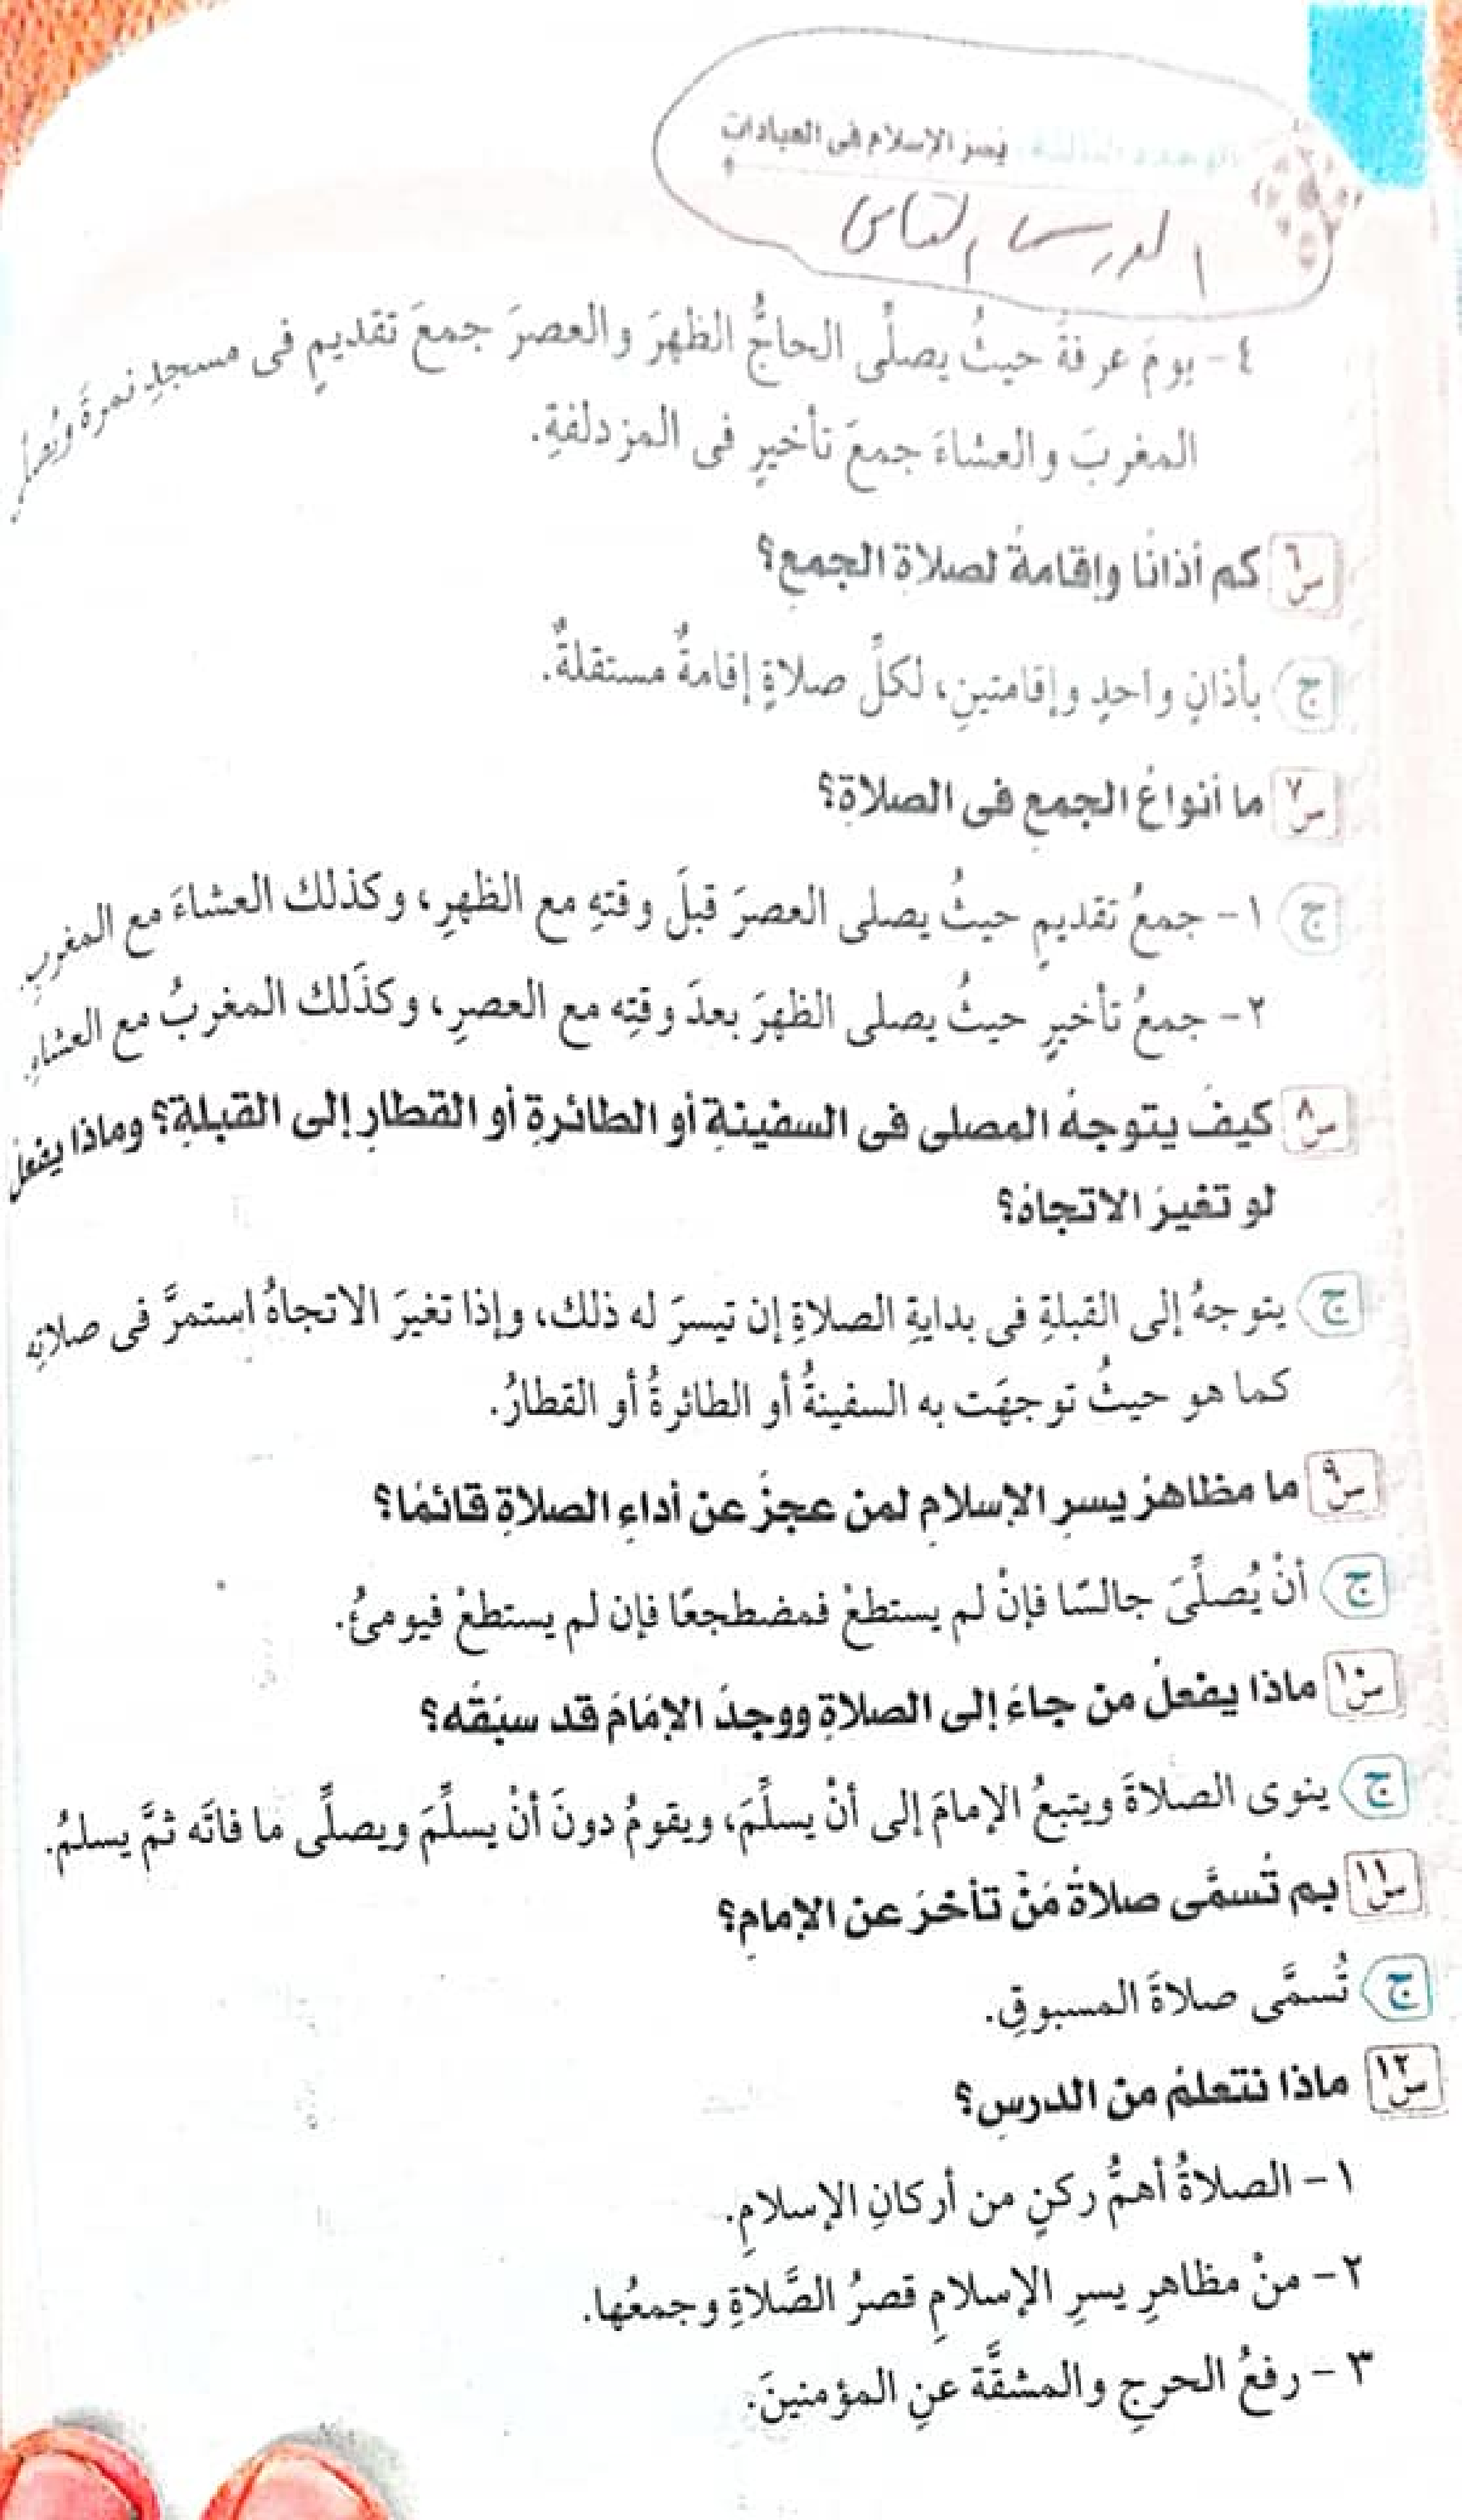 الوحدة الثالثة: يُسر الإسلام فى العبادات
الدرس الثامن
٤- يومَ عرفةَ حيثُ يصلِّى الحاجُّ الظهرَ والعصرَ جمعَ تقديمٍ فى مسجدِ نمرةَ
المغربَ والعشاءَ جمعَ تأخيرٍ فى المزدلفةِ.
س٦ كم أذانًا وإقامةً لصلاةِ الجمعِ؟
ج بأذانٍ واحدٍ وإقامتينِ، لكلِّ صلاةٍ إقامةٌ مستقلةٌ.
س٧ ما أنواعُ الجمعِ فى الصلاةِ؟
ج ١- جمعُ تقديمٍ حيثُ يصلى العصرَ قبلَ وقتِهِ مع الظهرِ، وكذلك العشاءَ مع المغربِ.
٢- جمعُ تأخيرٍ حيثُ يصلى الظهرَ بعدَ وقتِه مع العصرِ، وكذَلك المغربُ مع العشاءِ.
س٨ كيفَ يتوجهُ المصلى فى السفينةِ أو الطائرةِ أو القطارِ إلى القبلةِ؟ وماذا يفعلُ
لو تغيرَ الاتجاهُ؟
ج يتوجهُ إلى القبلةِ فى بدايةِ الصلاةِ إن تيسرَ له ذلك، وإذا تغيرَ الاتجاهُ استمرَّ فى صلاتِه
كما هو حيثُ توجهَت به السفينةُ أو الطائرةُ أو القطارُ.
س٩ ما مظاهرُ يسرِ الإسلامِ لمن عجزَ عن أداءِ الصلاةِ قائمًا؟
ج أنْ يُصلِّىَ جالسًا فإنْ لم يستطعْ فمضطجعًا فإن لم يستطعْ فيومئُ.
س١٠ ماذا يفعلُ من جاءَ إلى الصلاةِ ووجدَ الإمَامَ قد سبَقَه؟
ج ينوى الصلاةَ ويتبعُ الإمامَ إلى أنْ يسلِّمَ، ويقومُ دونَ أنْ يسلِّمَ ويصلِّى ما فاتَه ثمَّ يسلمُ.
س١١ بم تُسمَّى صلاةُ مَنْ تأخرَ عن الإمامِ؟
ج تُسمَّى صلاةَ المسبوقِ.
س١٢ ماذا نتعلمُ من الدرسِ؟
١- الصلاةُ أهمُّ ركنٍ من أركانِ الإسلامِ.
٢- منْ مظاهرِ يسرِ الإسلامِ قصرُ الصَّلاةِ وجمعُها.
٣- رفعُ الحرجِ والمشقَّة عنِ المؤمنينَ.